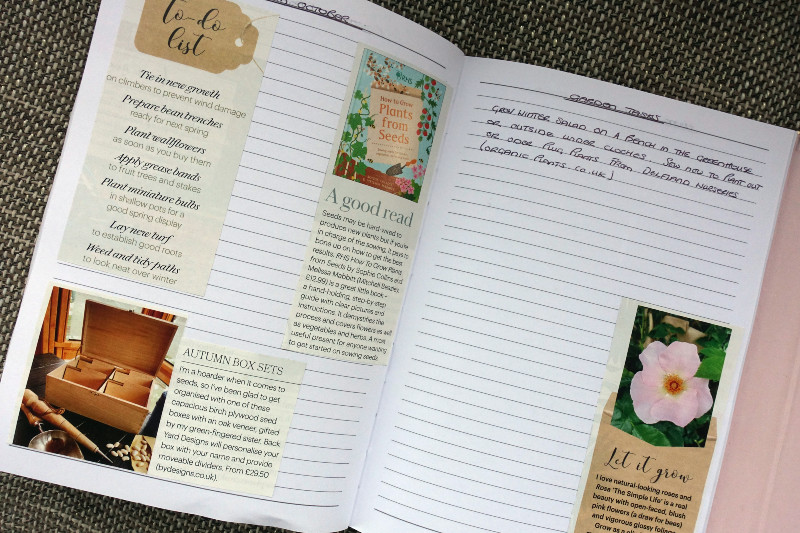 OCTOBER
To-do
list
Tie in new growth
on climbers to prevent wind damage
Prepare bean trenches
ready for next spring
Plant wallflowers
as soon as you buy them
Apply grease bands
to fruit trees and stakes
Plant miniature bulbs
in shallow pots for a
good spring display
Lay new turf
to establish good roots
Weed and tidy paths
to look neat over winter
RHS
How to Grow
Plants
from
Seeds
A good read
Seeds may be hard-wired to
produce new plants but if you're
in charge of the sowing, it pays to
bone up on how to get the best
results. RHS How To Grow Plants
from Seeds by Sophie Collins and
Melissa Mabbitt (Mitchell Beazley,
£12.99) is a great little book –
a hand-holding, step-by-step
guide with clear pictures and
instructions. It demystifies the
process and covers flowers as well
as vegetables and herbs. A more
useful present for anyone wanting
to get started on sowing seeds
AUTUMN BOX SETS
I'm a hoarder when it comes to
seeds, so I've been glad to get
organised with one of these
capacious birch plywood seed
boxes with an oak veneer, gifted
by my green-fingered sister. Back
Yard Designs will personalise your
box with your name and provide
moveable dividers. From £29.50
(bydesigns.co.uk).
GARDEN TASKS
GROW WINTER SALAD ON A BENCH IN THE GREENHOUSE
OR OUTSIDE UNDER CLOCHES. SOW NOW TO PLANT OUT
OR ORDER PLUG PLANTS FROM DELFLAND NURSERIES
(ORGANIC PLANTS.CO.UK)
Let it grow
I love natural-looking roses and
Rosa 'The Simple Life' is a real
beauty with open-faced, blush
pink flowers (a draw for bees)
and vigorous glossy foliage
Grow as a